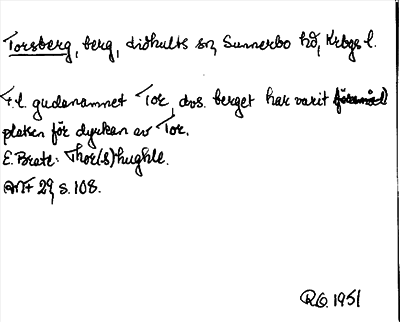 Torsberg, berg, Lidhults sn, Sunnerbo hd, Krbgs l.
F.l. gudanamnet Tor, dvs. berget har varit
platsen för dyrkan av Tor.
E. Brate: Thor(s)hughle.
ANF 29, s. 108.
R.G. 1951